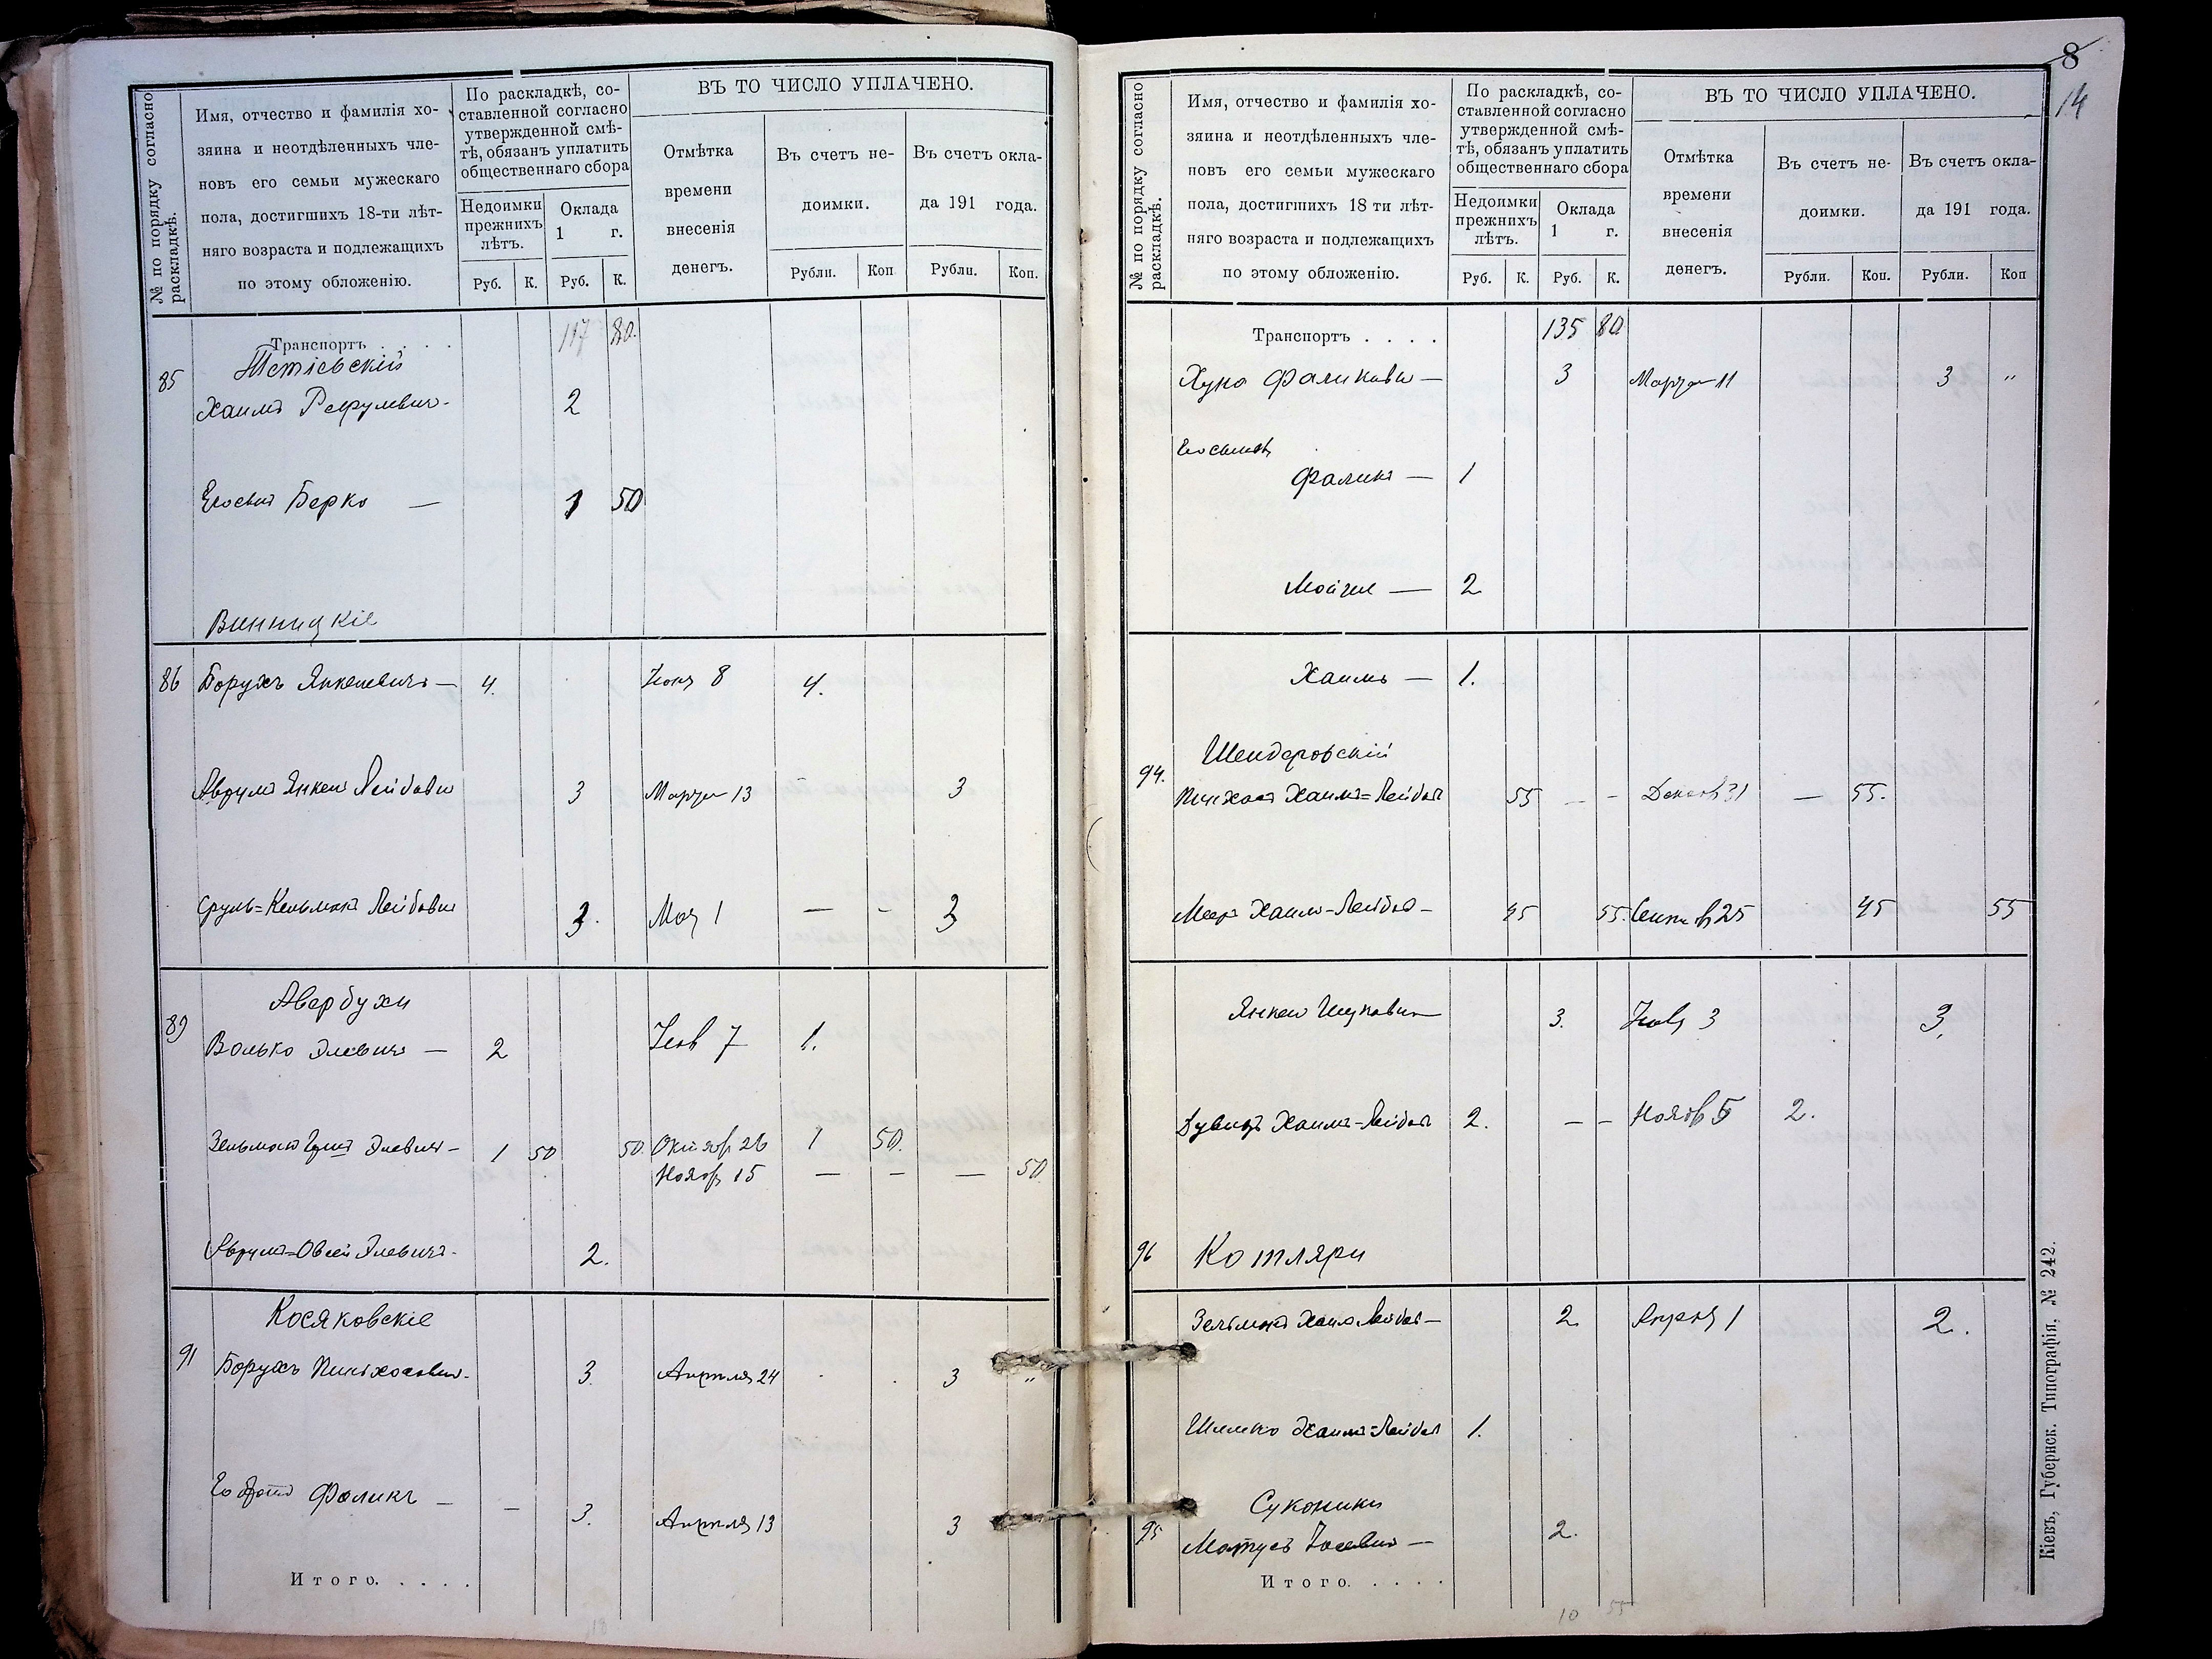 № по порядку согласно раскладкѣ.
Имя, отчество и фамилія хо-
зяина и неотдѣленныхъ чле-
новъ его семьи мужескаго
пола, достигшихъ 18-ти лѣт-
няго возраста и подлежащихъ
по этому обложенію.
По раскладкѣ, со-
ставленной согласно
утвержденной смѣ-
тѣ, обязанъ уплатить
общественнаго сбора
Недоимки
прежнихъ
лѣтъ.
Оклада
1 г.
Руб. К. Руб. К.
ВЪ ТО ЧИСЛО УПЛАЧЕНО.
Отмѣтка
времени
внесенія
денегъ.
Въ счетъ не-
доимки.
Въ счетъ окла-
да 191 года.
Рубли. Коп Рубли. Коп.
Транспортъ . . . . 117 80.
Тетіевскій
85 Хаимъ Рефулевич- 2
Его сынъ Берко — 1 50
Винницкіе
86 Борухъ Янкелевичъ — 4. Іюня 8 4.
Аврумъ Янкель Лейбови 3 Марта 13 3
Сруль=Кельманъ Лейбови 3. Мая 1 — - 3
Авербухи
89 Волько Элевичъ — 2 7 1.
Зельманъ Элевич - 1 50 50. Октябр 26 1 50.
Ноябр 15 — — — 50
Аврумъ=Овсей Элевичъ- 2.
Косяковскіе
91 Борухъ Пинхосович- 3. Апрѣля 24 3 "
Его братъ Фоликъ — - 3. Апрѣля 13 3
Итого. . . . .
8
14
№ по порядку согласно раскладкѣ.
Имя, отчество и фамилія хо-
зяина и неотдѣленныхъ чле-
новъ его семьи мужескаго
пола, достигшихъ 18 ти лѣт-
няго возраста и подлежащихъ
по этому обложенію.
По раскладкѣ, со-
ставленной согласно
утвержденной смѣ-
тѣ, обязанъ уплатить
общественнаго сбора
Недоимки
прежнихъ
лѣтъ.
Оклада
1 г.
Руб. К. Руб. К.
ВЪ ТО ЧИСЛО УПЛАЧЕНО.
Отмѣтка
времени
внесенія
денегъ.
Въ счетъ не-
доимки.
Въ счетъ окла-
да 191 года.
Рубли. Коп. Рубли. Коп
Транспортъ . . . . 135 80
Хуна Фаликови — 3 Марта 11 3 "
Его сынов
Фаликъ — 1
Мойше — 2
Хаимъ — 1.
Шендеровскій
94. Пинхасъ Хаимъ=Лейбов 55 — - Декабр 31 — 55.
Меер Хаимъ-Лейбов - 45 55. Сентяб 25 45 55
Янкель Ицкович 3. 3 3.
Дувидъ Хаимъ-Лейбов 2. — - Ноябр 5 2.
96 Котляри
Зельманъ Хаим Лейбов — 2. Апрѣл 1 2.
Шимко Хаимъ=Лейбов 1.
Суконики
95 Матусъ — 2.
Итого. . . . .
10 55
Кіевъ, Губернск. Типографія, № 242.